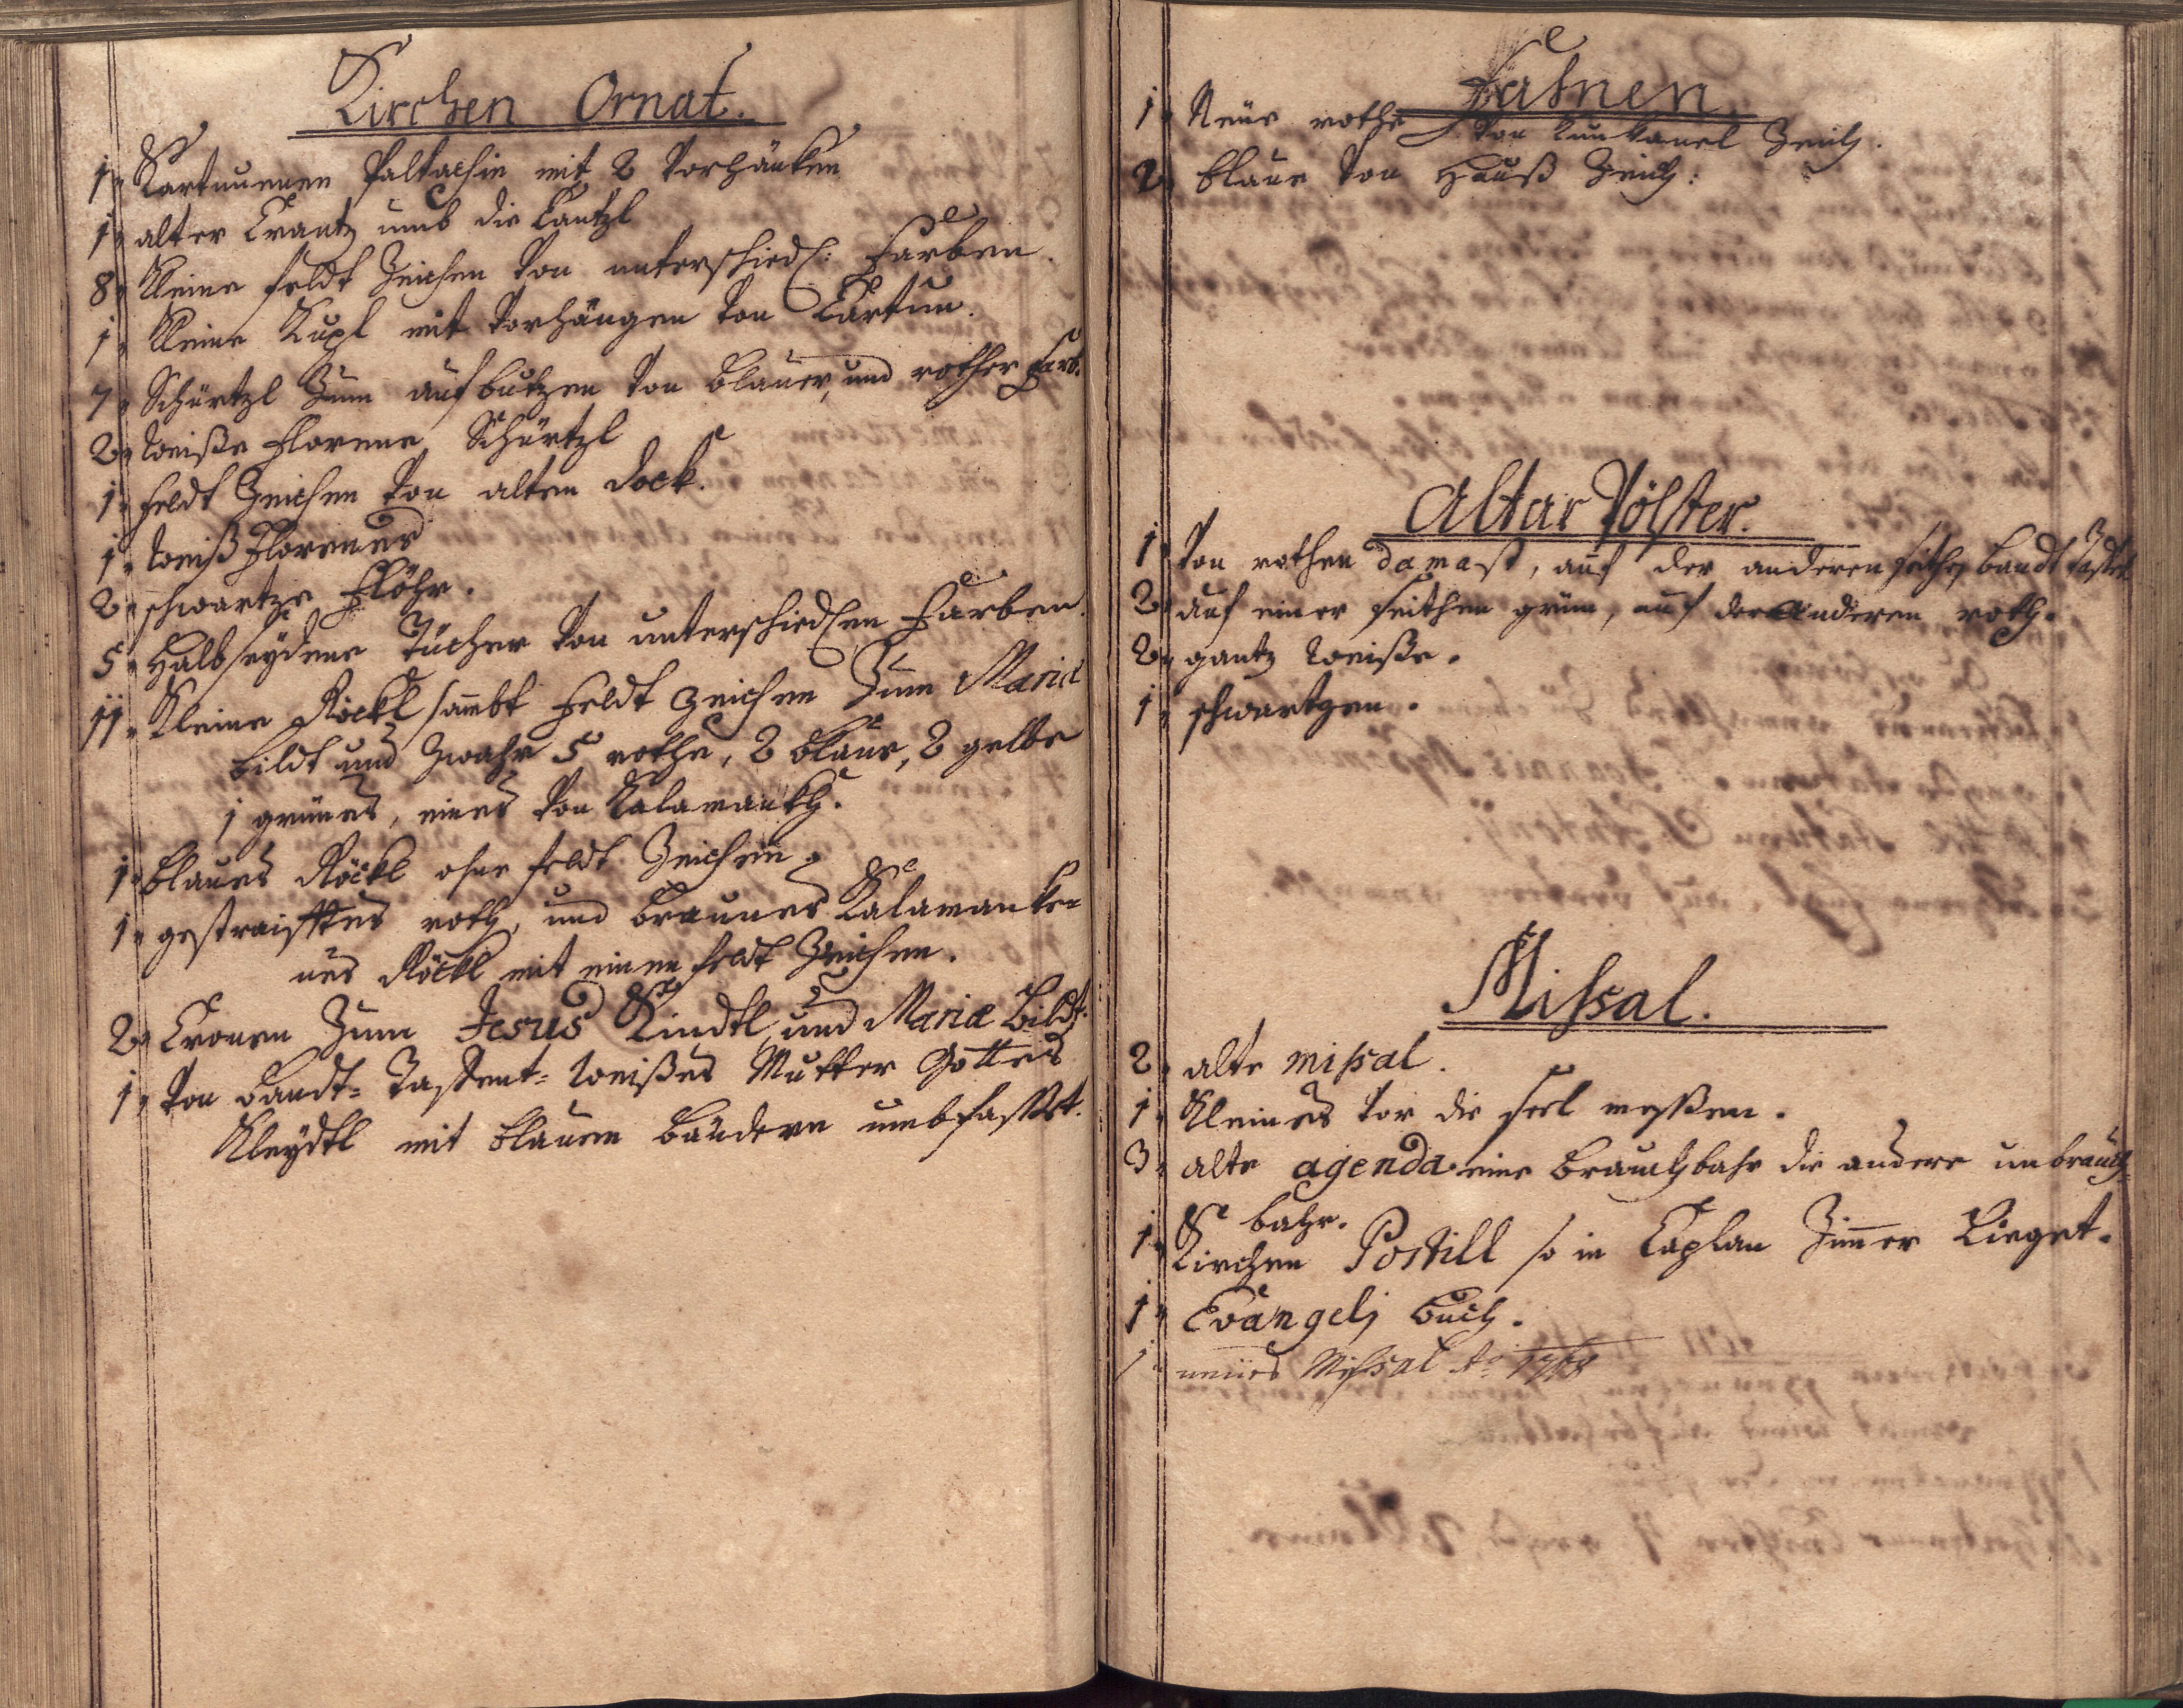 Kirchen Ornat.
1. Kartuenen Paltachin mit 2 Vorhänken
1. alter Crantz umb die Cantzl
8. Kleine Feldt Zeichen von unterschiedl: Farben.
1. Kleine Kupl mit Vorhängen von Cartun.
7. Schürtzl Zum aufbutzen von blauer, und rother farb.
2. weisse florene Schürtzl
1. Feldt Zeichen von alten dock.
1. weiß florenes
2. schwartze Flöhr.
5. Halbseydene Tücher von unterschiedlen Farben.
11. Kleine Röckl sambt Feldt Zeichen Zum Maria
bildt und Zwahr 5 rothe, 2 blaue, 2 gelbe
1 grünes, eines von Kalamankh.
1. blaues Röckl ohne feldt Zeichen.
1. gestraifftes roth, und braunes Kalamanke=
nes Röckl mit einen feldt Zeichen.
2. Cronen Zum Jesus Kindtl, und Mariæ Bildt.
1. von bandt= Taffent= weißes Mutter Gottes
Kleydtl mit blauen bändern umbfasst.
Fahnen.
1. Neue rothe von Zeich.
2. blaue von Hauß Zeich:
Altar Pölster.
1. von rothen damast, auf der anderen seithen bandt
2. auf einer seithen grün, auf der anderen roth.
2. gantz weisse.
1. schwartzen.
Missal.
2. alte missal.
1. Kleines vor die seel messen.
3. alte agenda eine brauchbahr die andere unbrauch=
bahr.
1. Kirchen Postill so in Caplan Zimer Lieget.
1. Evangelj buch.
1. neües Missal Ao 1768